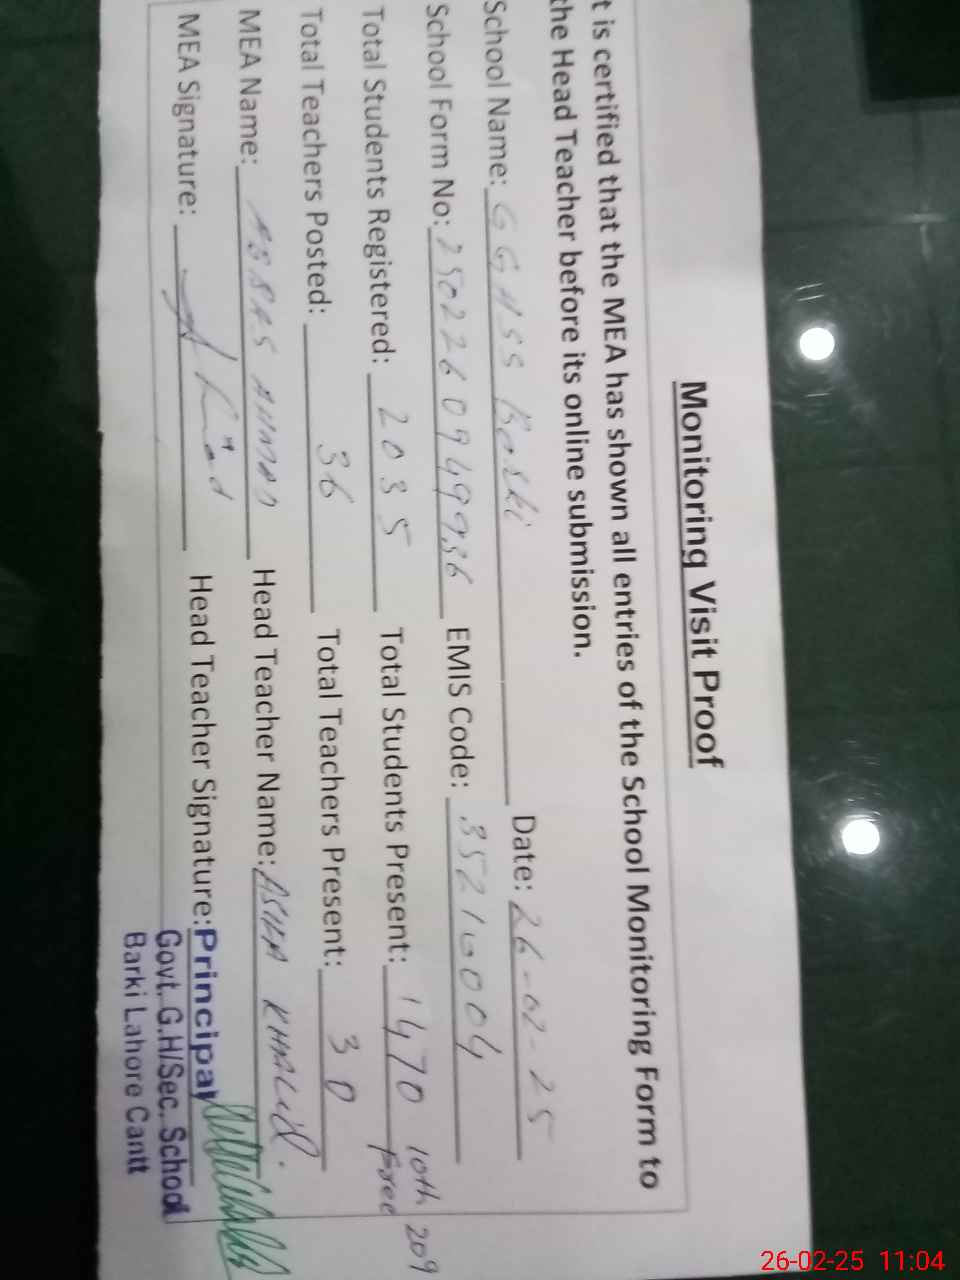 Monitoring Visit Proof
t is certified that the MEA has shown all entries of the School Monitoring Form to
the Head Teacher before its online submission.
School Name: GGHSS Barki Date: 26-02-25
School Form No: 25022609499936 EMIS Code: 35210004
Total Students Registered: 2035 Total Students Present: 1470 10th 209 Free
Total Teachers Posted: 36 Total Teachers Present: 30
MEA Name: ABBAS AHMAD Head Teacher Name: ASMA KHALID.
MEA Signature: Head Teacher Signature: Principal
Govt. G.H/Sec. School
Barki Lahore Cantt
26-02-25 11:04